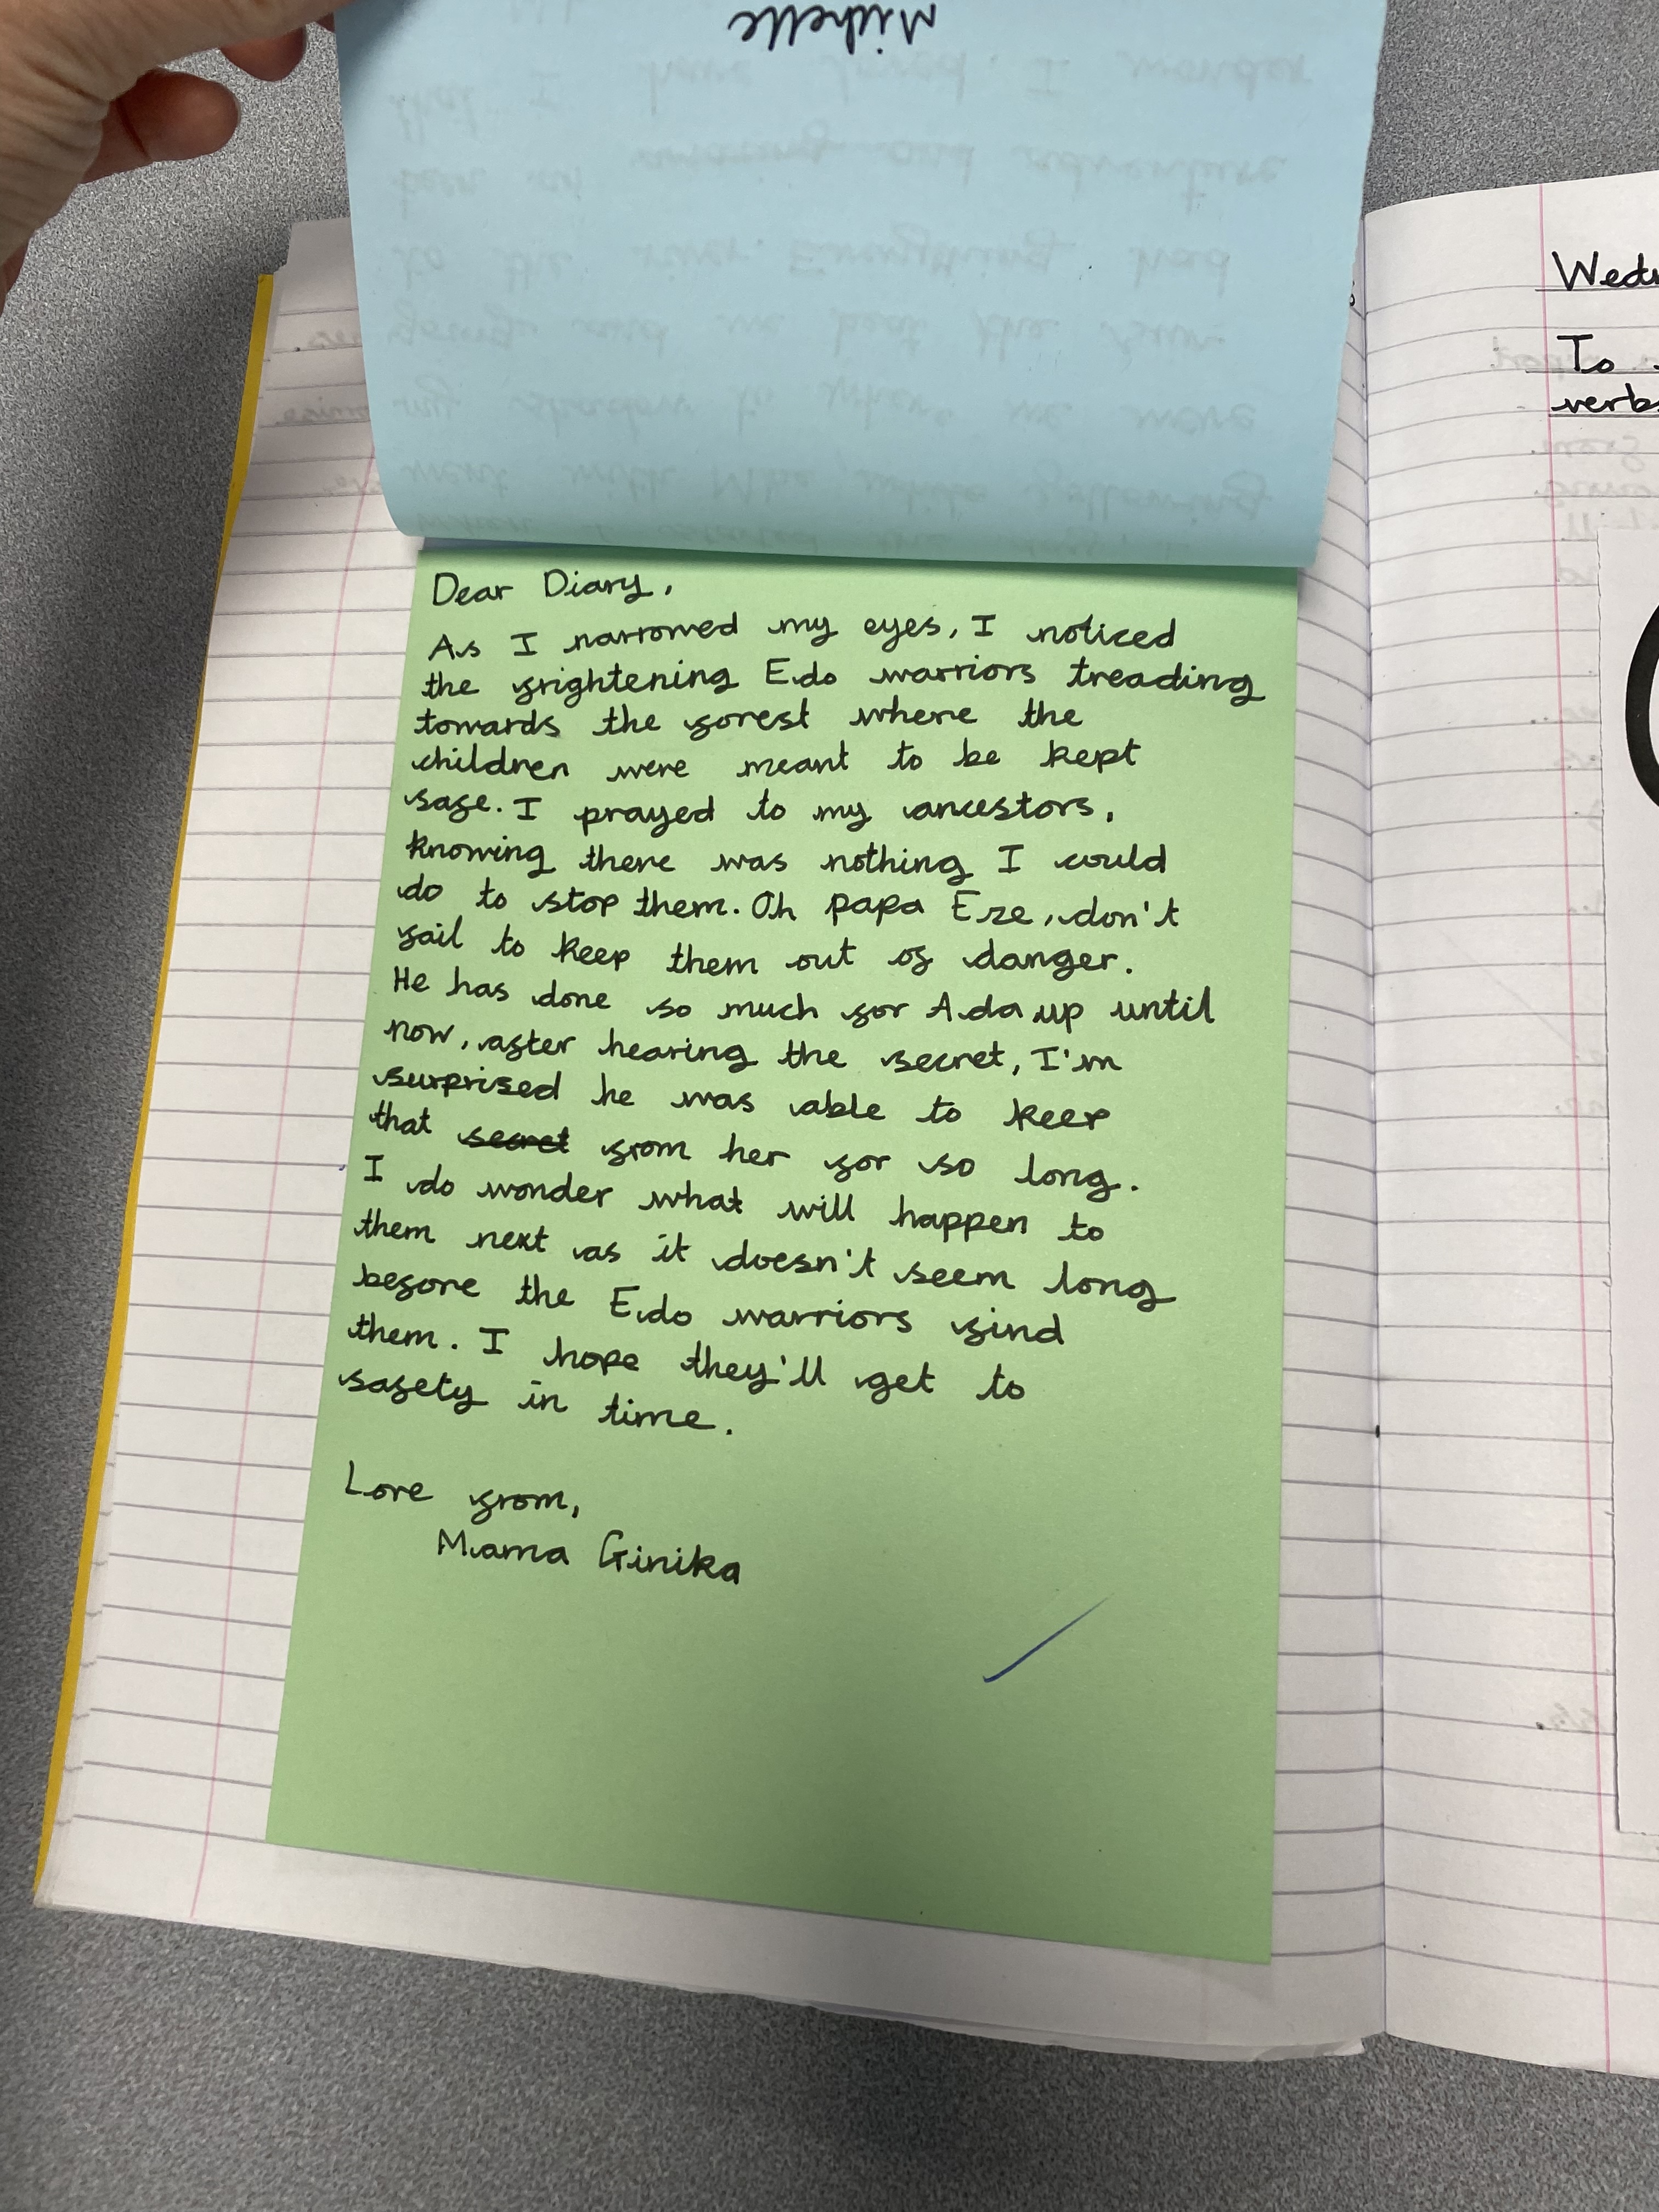 Michelle
Dear Diary,
As I narrowed my eyes, I noticed
the frightening Edo warriors treading
towards the forest where the
children were meant to be kept
safe. I prayed to my ancestors,
knowing there was nothing I could
do to stop them. Oh papa Eze, don't
fail to keep them out of danger.
He has done so much for Ada up until
now, after hearing the secret, I'm
surprised he was able to keep
that secret from her for so long.
I do wonder what will happen to
them next as it doesn't seem long
before the Edo warriors find
them. I hope they'll get to
safety in time.
Love from,
Mama Ginika
To
verbs